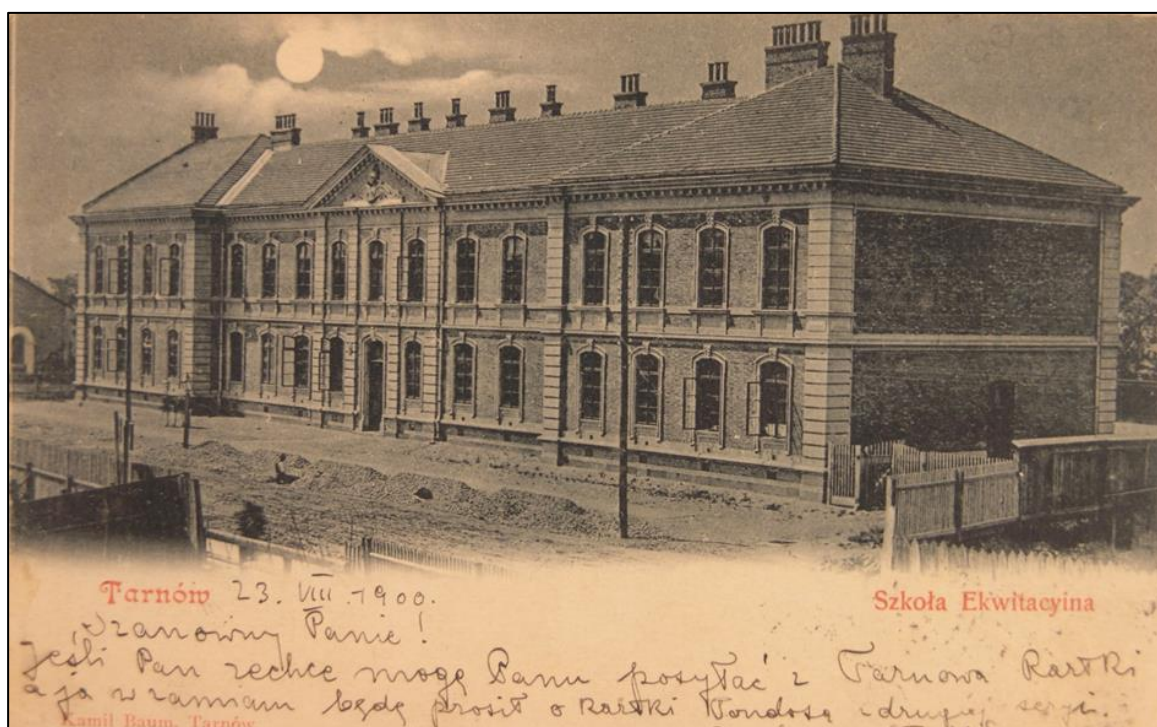 Tarnów 23. VIII. 1900.
Szkoła Ekwitacyina
Szanowny Panie!
Jeśli Pan zechce mogę Panu posyłać z Tarnowa Kartki
a ja w zamian będę prosił o kartki i drugiej seryi.
Kamil Baum, Tarnów